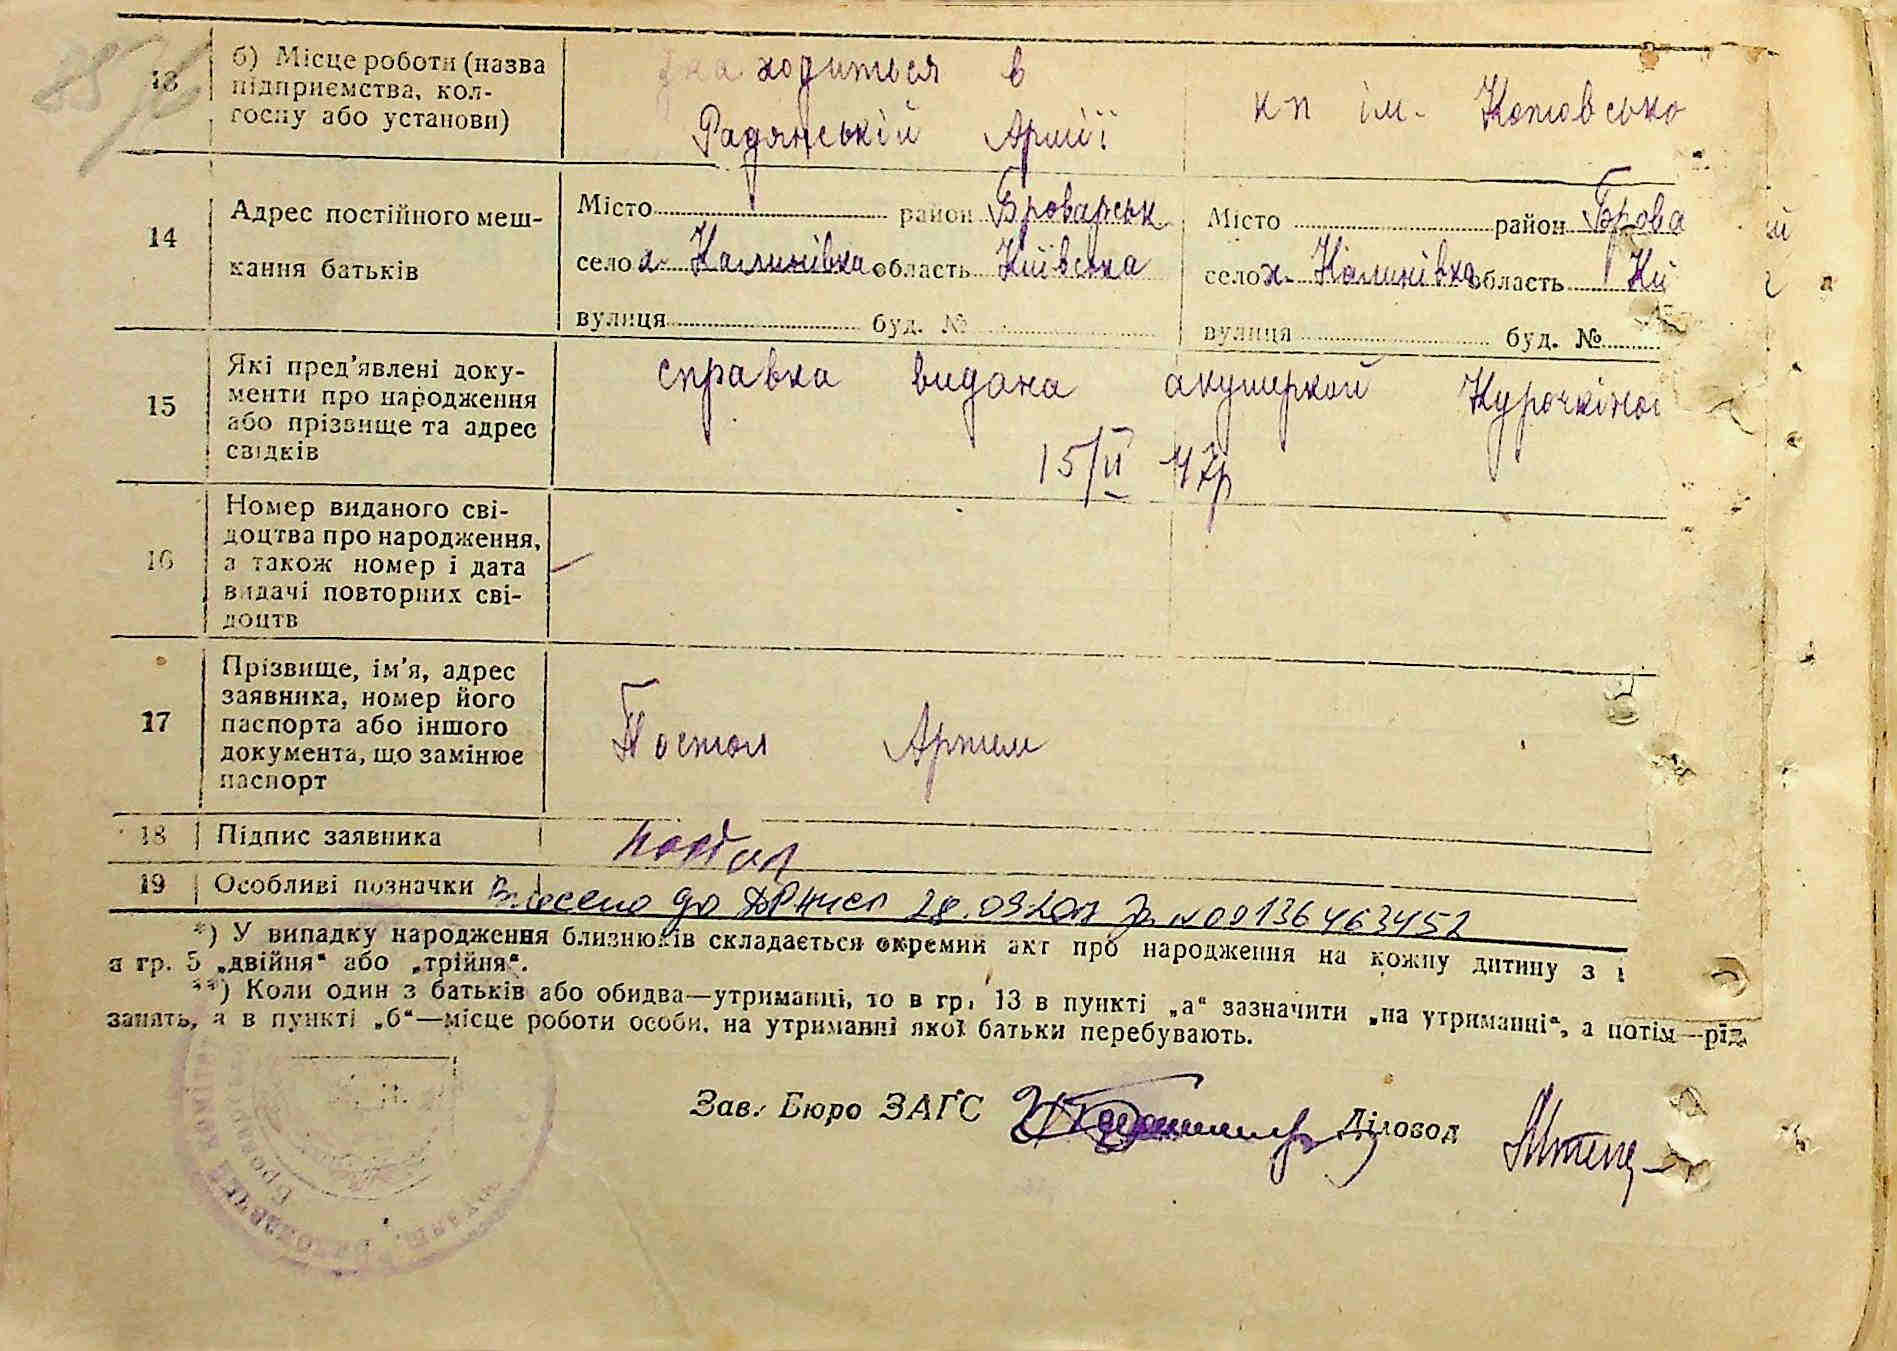 13 б) Місце роботи (назва підприємства, кол-госпу або установи)
знаходиться в
Радянській Армії
кп ім. Котовсько
14 Адрес постійного меш-
кання батьків
Місто район Броварськ
село х. Калинівка область Київська
вулиця буд. №
Місто район Брова
село х. Калинівка область Ки
вулиця буд. №
15 Які пред'явлені доку-
менти про народження
або прізвище та адрес
свідків
справка видана акушеркой Курочкіной
15/II 47р
16 Номер виданого сві-
доцтва про народження,
а також номер і дата
видачі повторних сві-
доцтв
17 Прізвище, ім'я, адрес
заявника, номер його
паспорта або іншого
документа, що замінює
паспорт
Постол Артем
18 Підпис заявника
постол
19 Особливі позначки Внесено до 28.03. За №00136463452
*) У випадку народження близнюків складається окремий акт про народження на кожну дитину з
в гр. 5 „двійня“ або „трійня“.
**) Коли один з батьків або обидва—утриманці, то в гр. 13 в пункті „а“ зазначити „на утриманні“, а потім—рід
занять, а в пункті „б“—місце роботи особи, на утриманні якої батьки перебувають.
Зав. Бюро ЗАГС Діловод